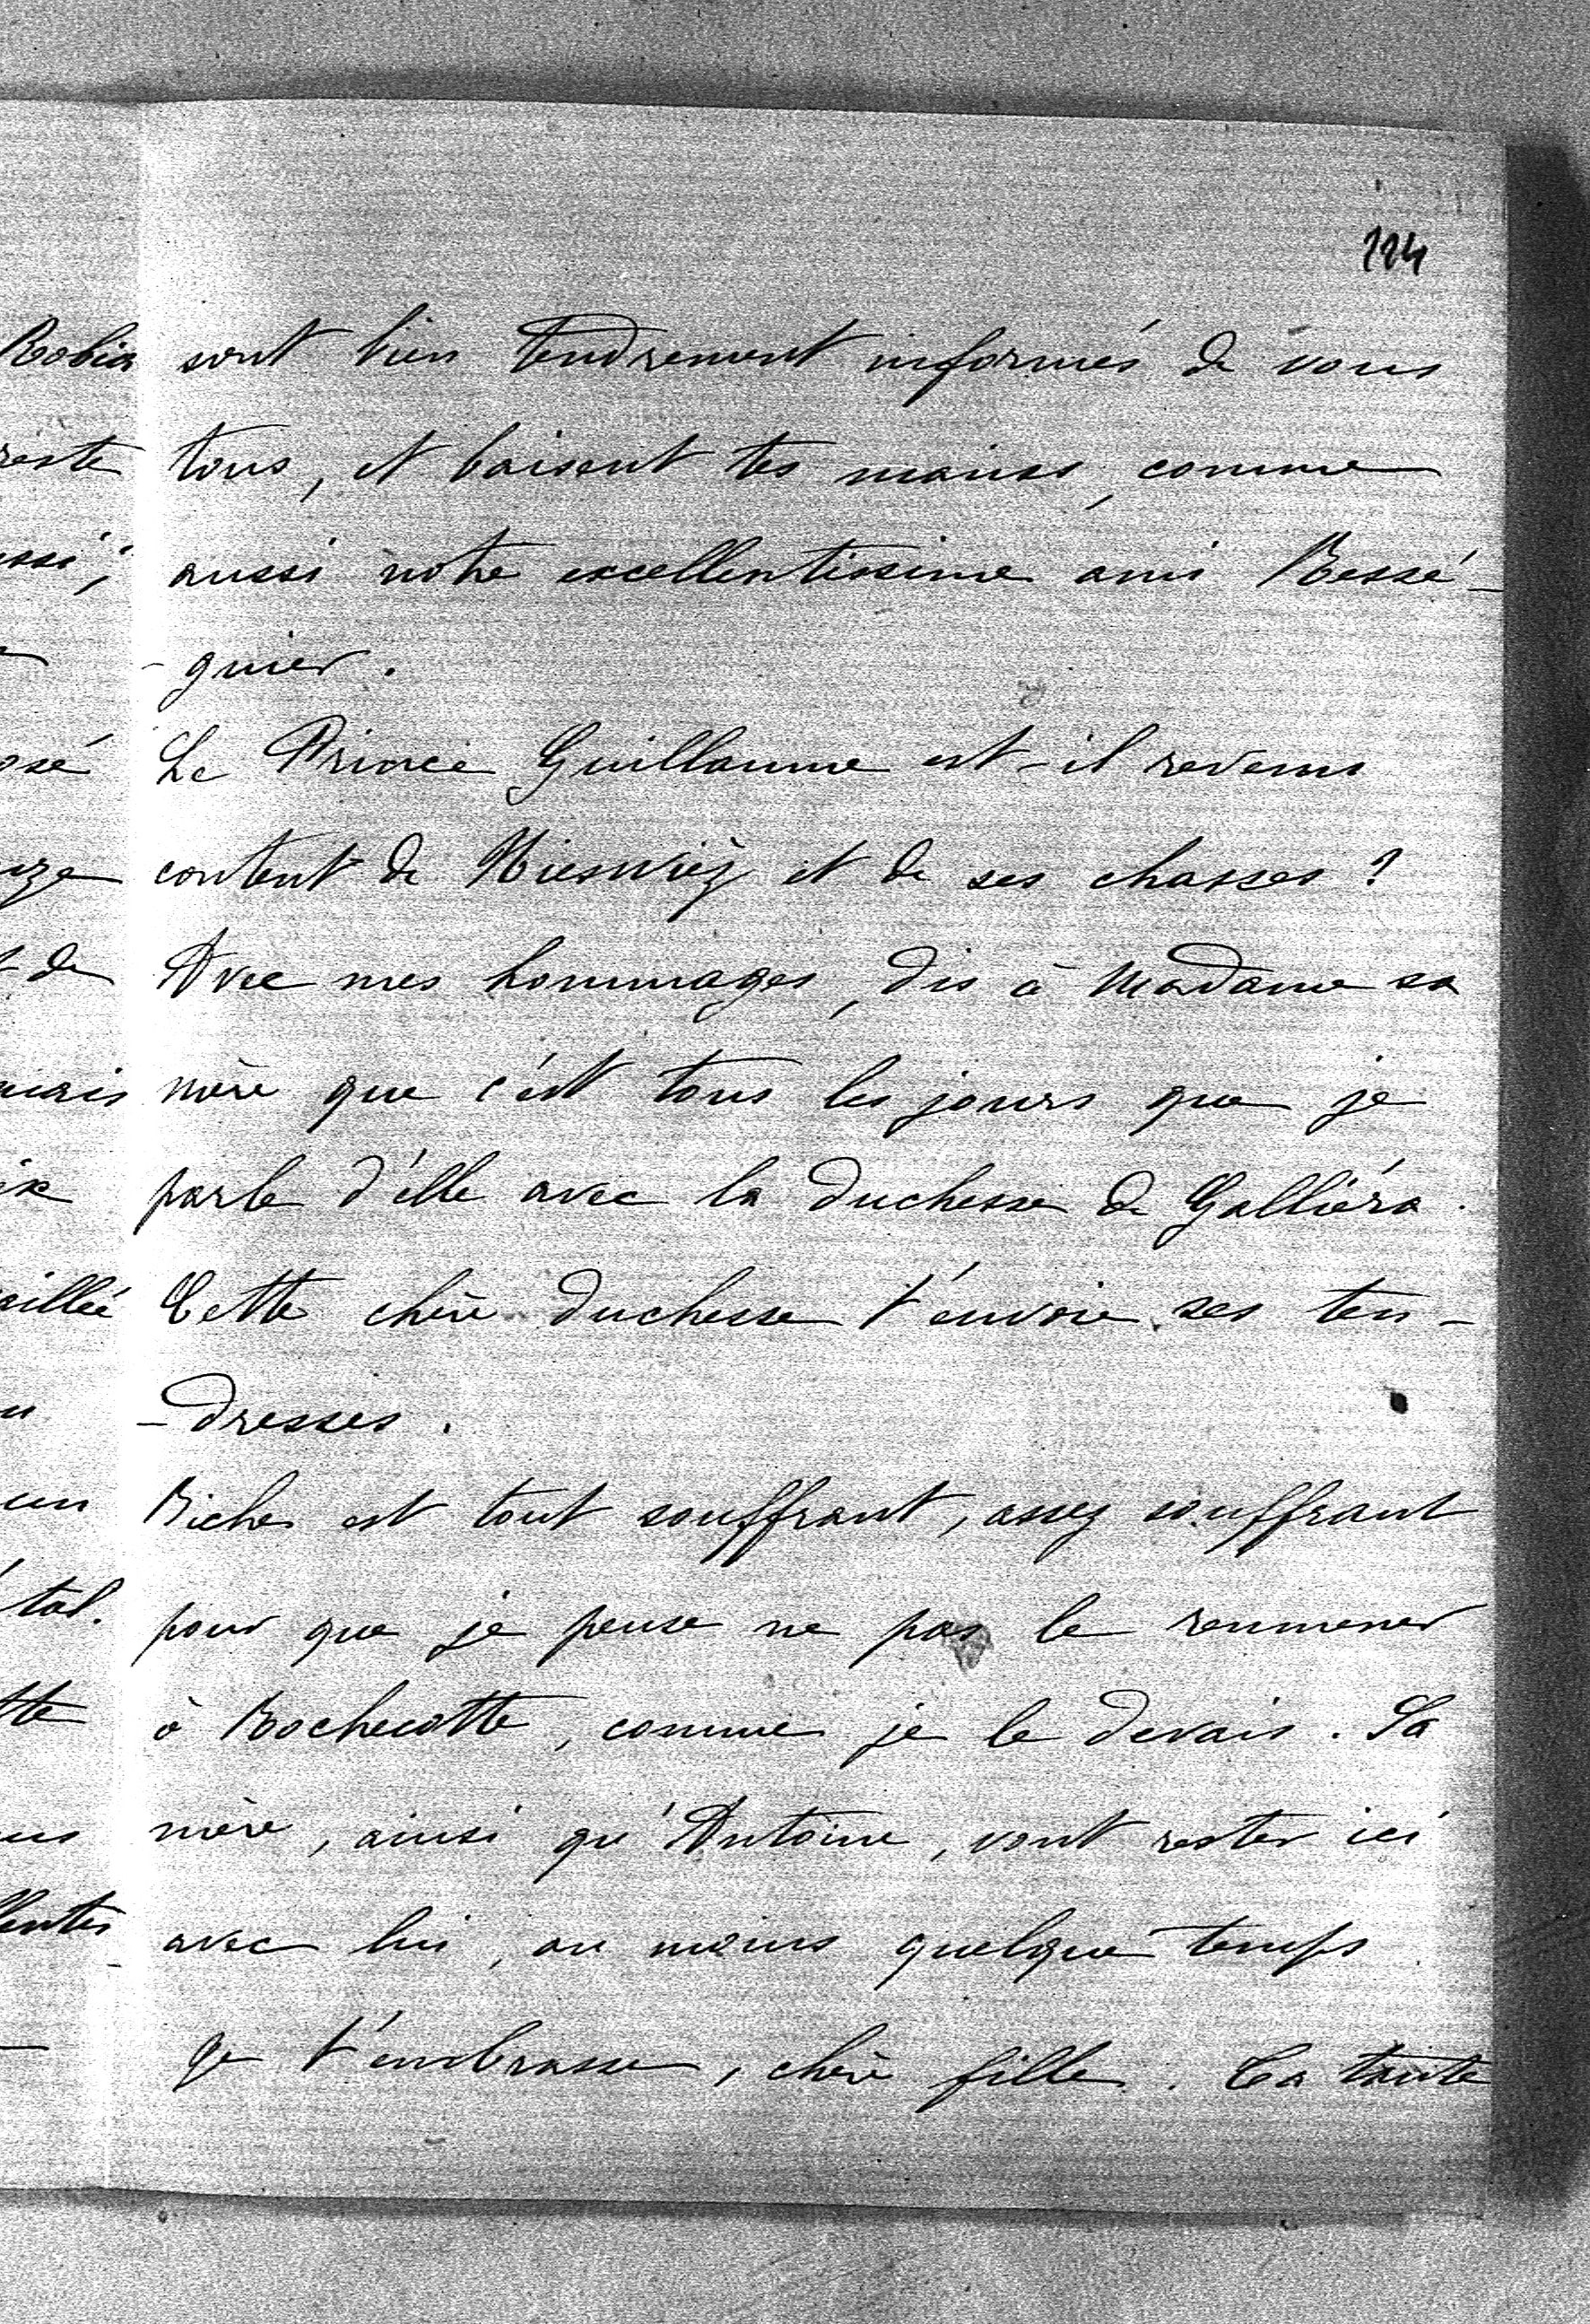 114
sont bien tendrement informés de vous
tous, et baisent tes mains, comme
aussi notre excellentissime ami Bessé-
-guier.
Le Prince Guillaume est-il revenu
content de Nieswiéz et de ses chasses ?
Avec mes hommages, dis à Madame sa
mère que c'est tous les jours que je
parle d'elle avec la duchesse de Galliéra.
Cette chère duchesse t'envoie ses ten-
-dresses.
est tout souffrant, assez souffrant
pour que je pense ne pas le remmener
à Rochecotte, comme je le devais. Sa
mère, ainsi qu'Antoine, vont rester ici
avec lui, au moins quelque temps
Je t'embrasse, chère fille. Ta tante